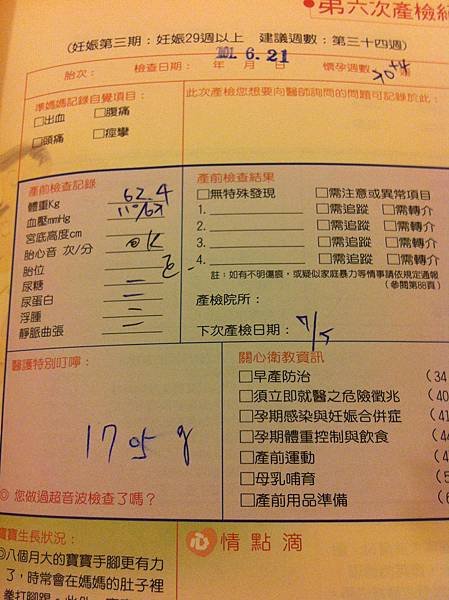 •第六次產檢紀
(妊娠第三期：妊娠29週以上 建議週數：第三十四週)
胎次： 檢查日期：101年6月21日 懷孕週數：30+4
準媽媽記錄自覺項目：
□出血 □腹痛
□頭痛 □痙攣
此次產檢您想要向醫師詢問的問題可記錄於此：
產前檢查記錄
體重Kg 62.4
血壓mmHg 110/67
宮底高度cm
胎心音 次/分 OK
胎位
尿糖 —
尿蛋白 —
浮腫 —
靜脈曲張 —
產前檢查結果
□無特殊發現 □需注意或異常項目
1. □需追蹤 □需轉介
2. □需追蹤 □需轉介
3. □需追蹤 □需轉介
4. □需追蹤 □需轉介
註：如有不明傷痕，或疑似家庭暴力等情事請依規定通報
(參閱第88頁)
產檢院所：
下次產檢日期：7/5
醫護特別叮嚀：
1705 g
◎ 您做過超音波檢查了嗎？
關心衛教資訊
□早產防治 (34
□須立即就醫之危險徵兆 (40
□孕期感染與妊娠合併症 (41
□孕期體重控制與飲食 (44
□產前運動 (4
□母乳哺育 (5
□產前用品準備 (6
寶寶生長狀況：
◎八個月大的寶寶手腳更有力
了，時常會在媽媽的肚子裡
心情點滴